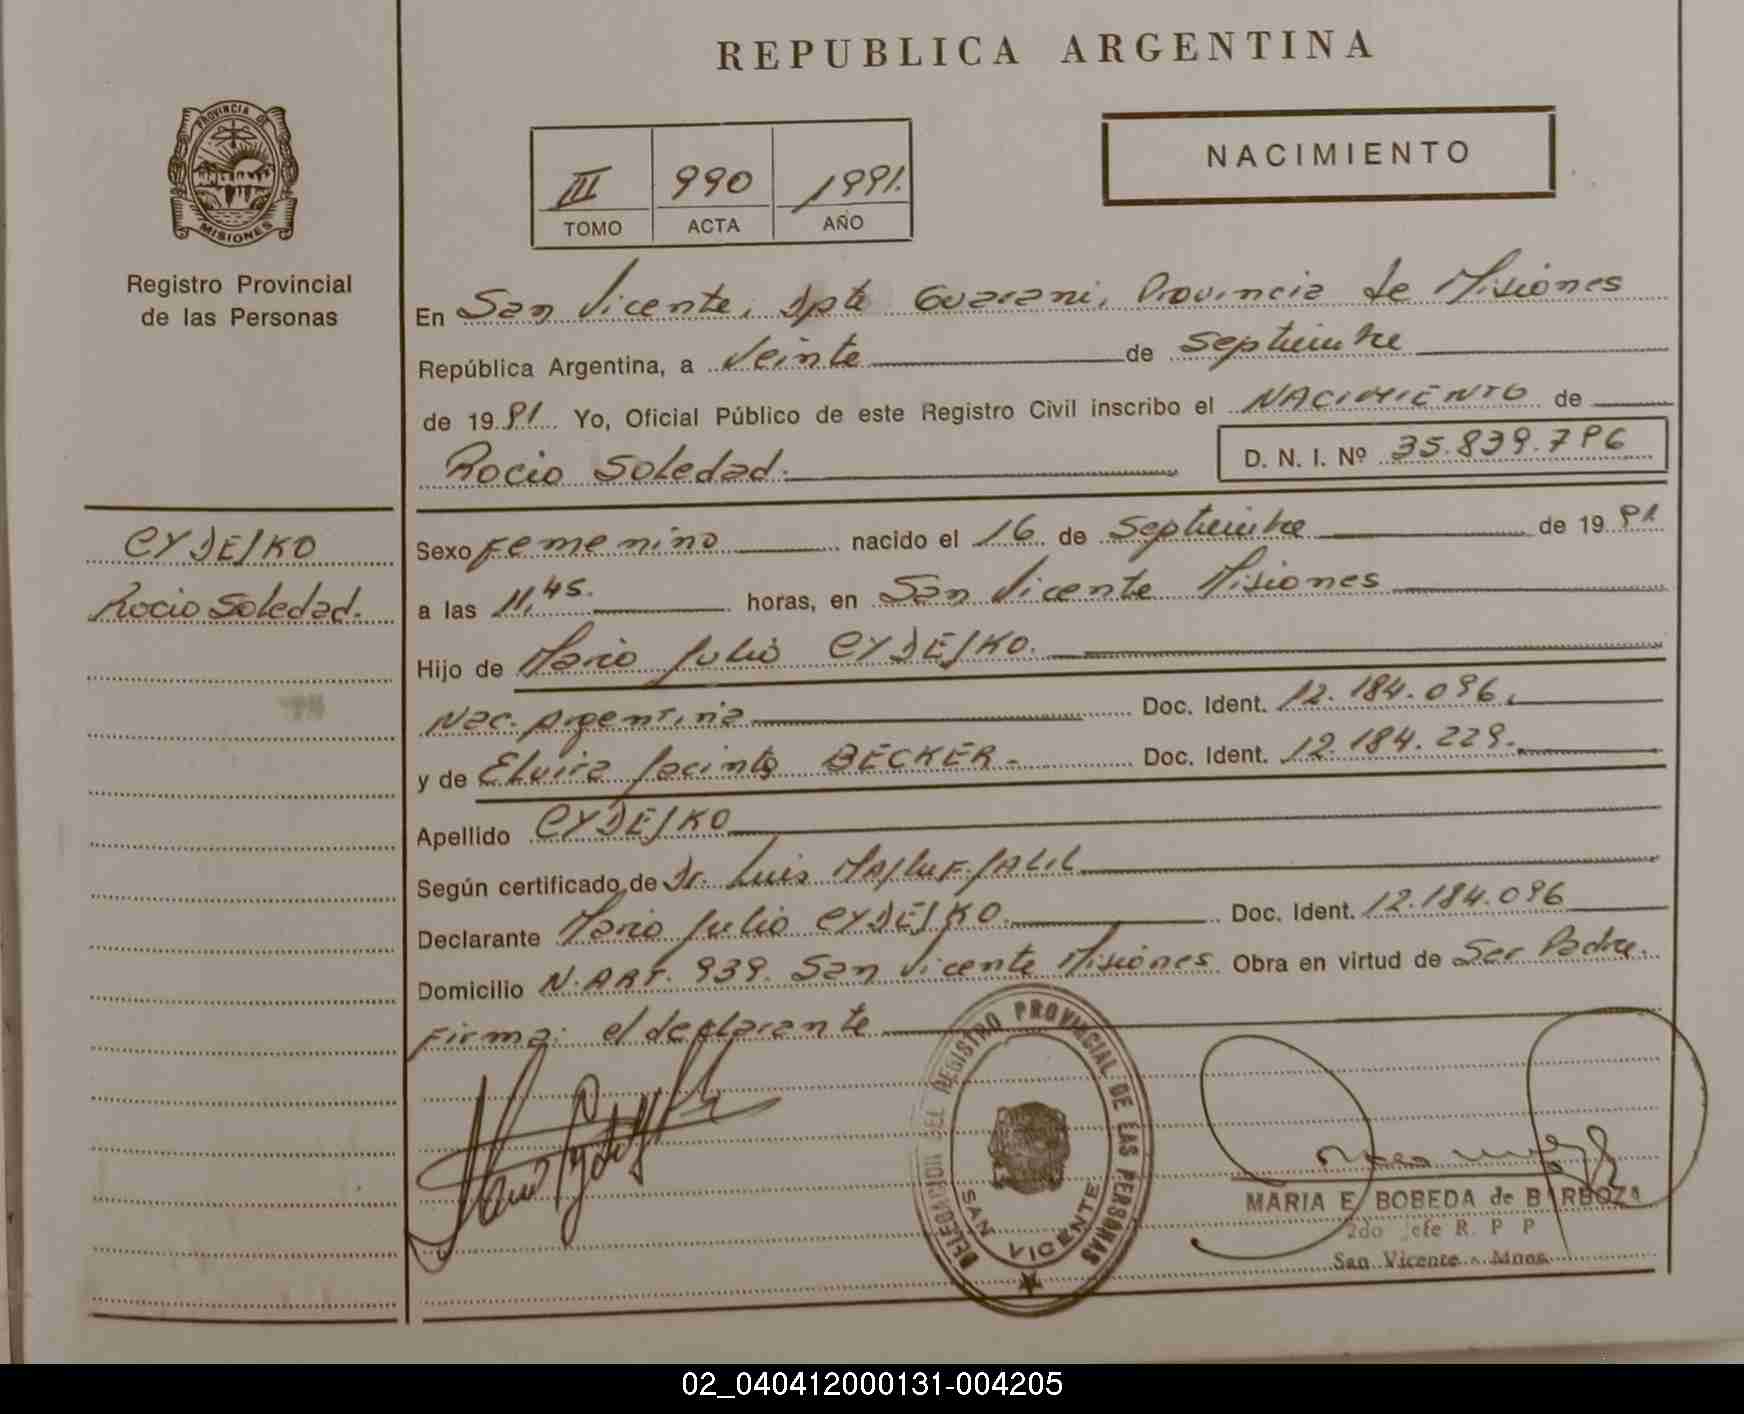 REPUBLICA ARGENTINA
PROVINCIA DE
MISIONES
Registro Provincial
de las Personas
NACIMIENTO
III 990 1991.
TOMO ACTA AÑO
En San Vicente, Dpto Guarani, Provincia de Misiones
República Argentina, a Veinte de Septiembre
de 1991 Yo, Oficial Público de este Registro Civil inscribo el NACIMIENTO de
Rocio Soledad. D. N. I. Nº 35.839.796
CYDEJKO
Rocio Soledad.
Sexo Femenino nacido el 16 de Septiembre de 1991
a las 11,45. horas, en San Vicente Misiones
Hijo de Mario Julio CYDEJKO.
Nac. Argentina Doc. Ident. 12.184.096.
y de Elvira Jacinta BECKER.- Doc. Ident. 12.184.229.
Apellido CYDEJKO
Según certificado de Dr. Luis
Declarante Mario Julio CYDEJKO. Doc. Ident. 12.184.096
Domicilio N. ART. 939. San Vicente Misiones Obra en virtud de Ser Padre.
Firma: el declarante
DELEGACION DEL REGISTRO PROVINCIAL DE LAS PERSONAS
SAN VICENTE
MARIA E. BOBEDA de BARBOZA
2do Jefe R. P. P
San Vicente - Mnes.
02_040412000131-004205